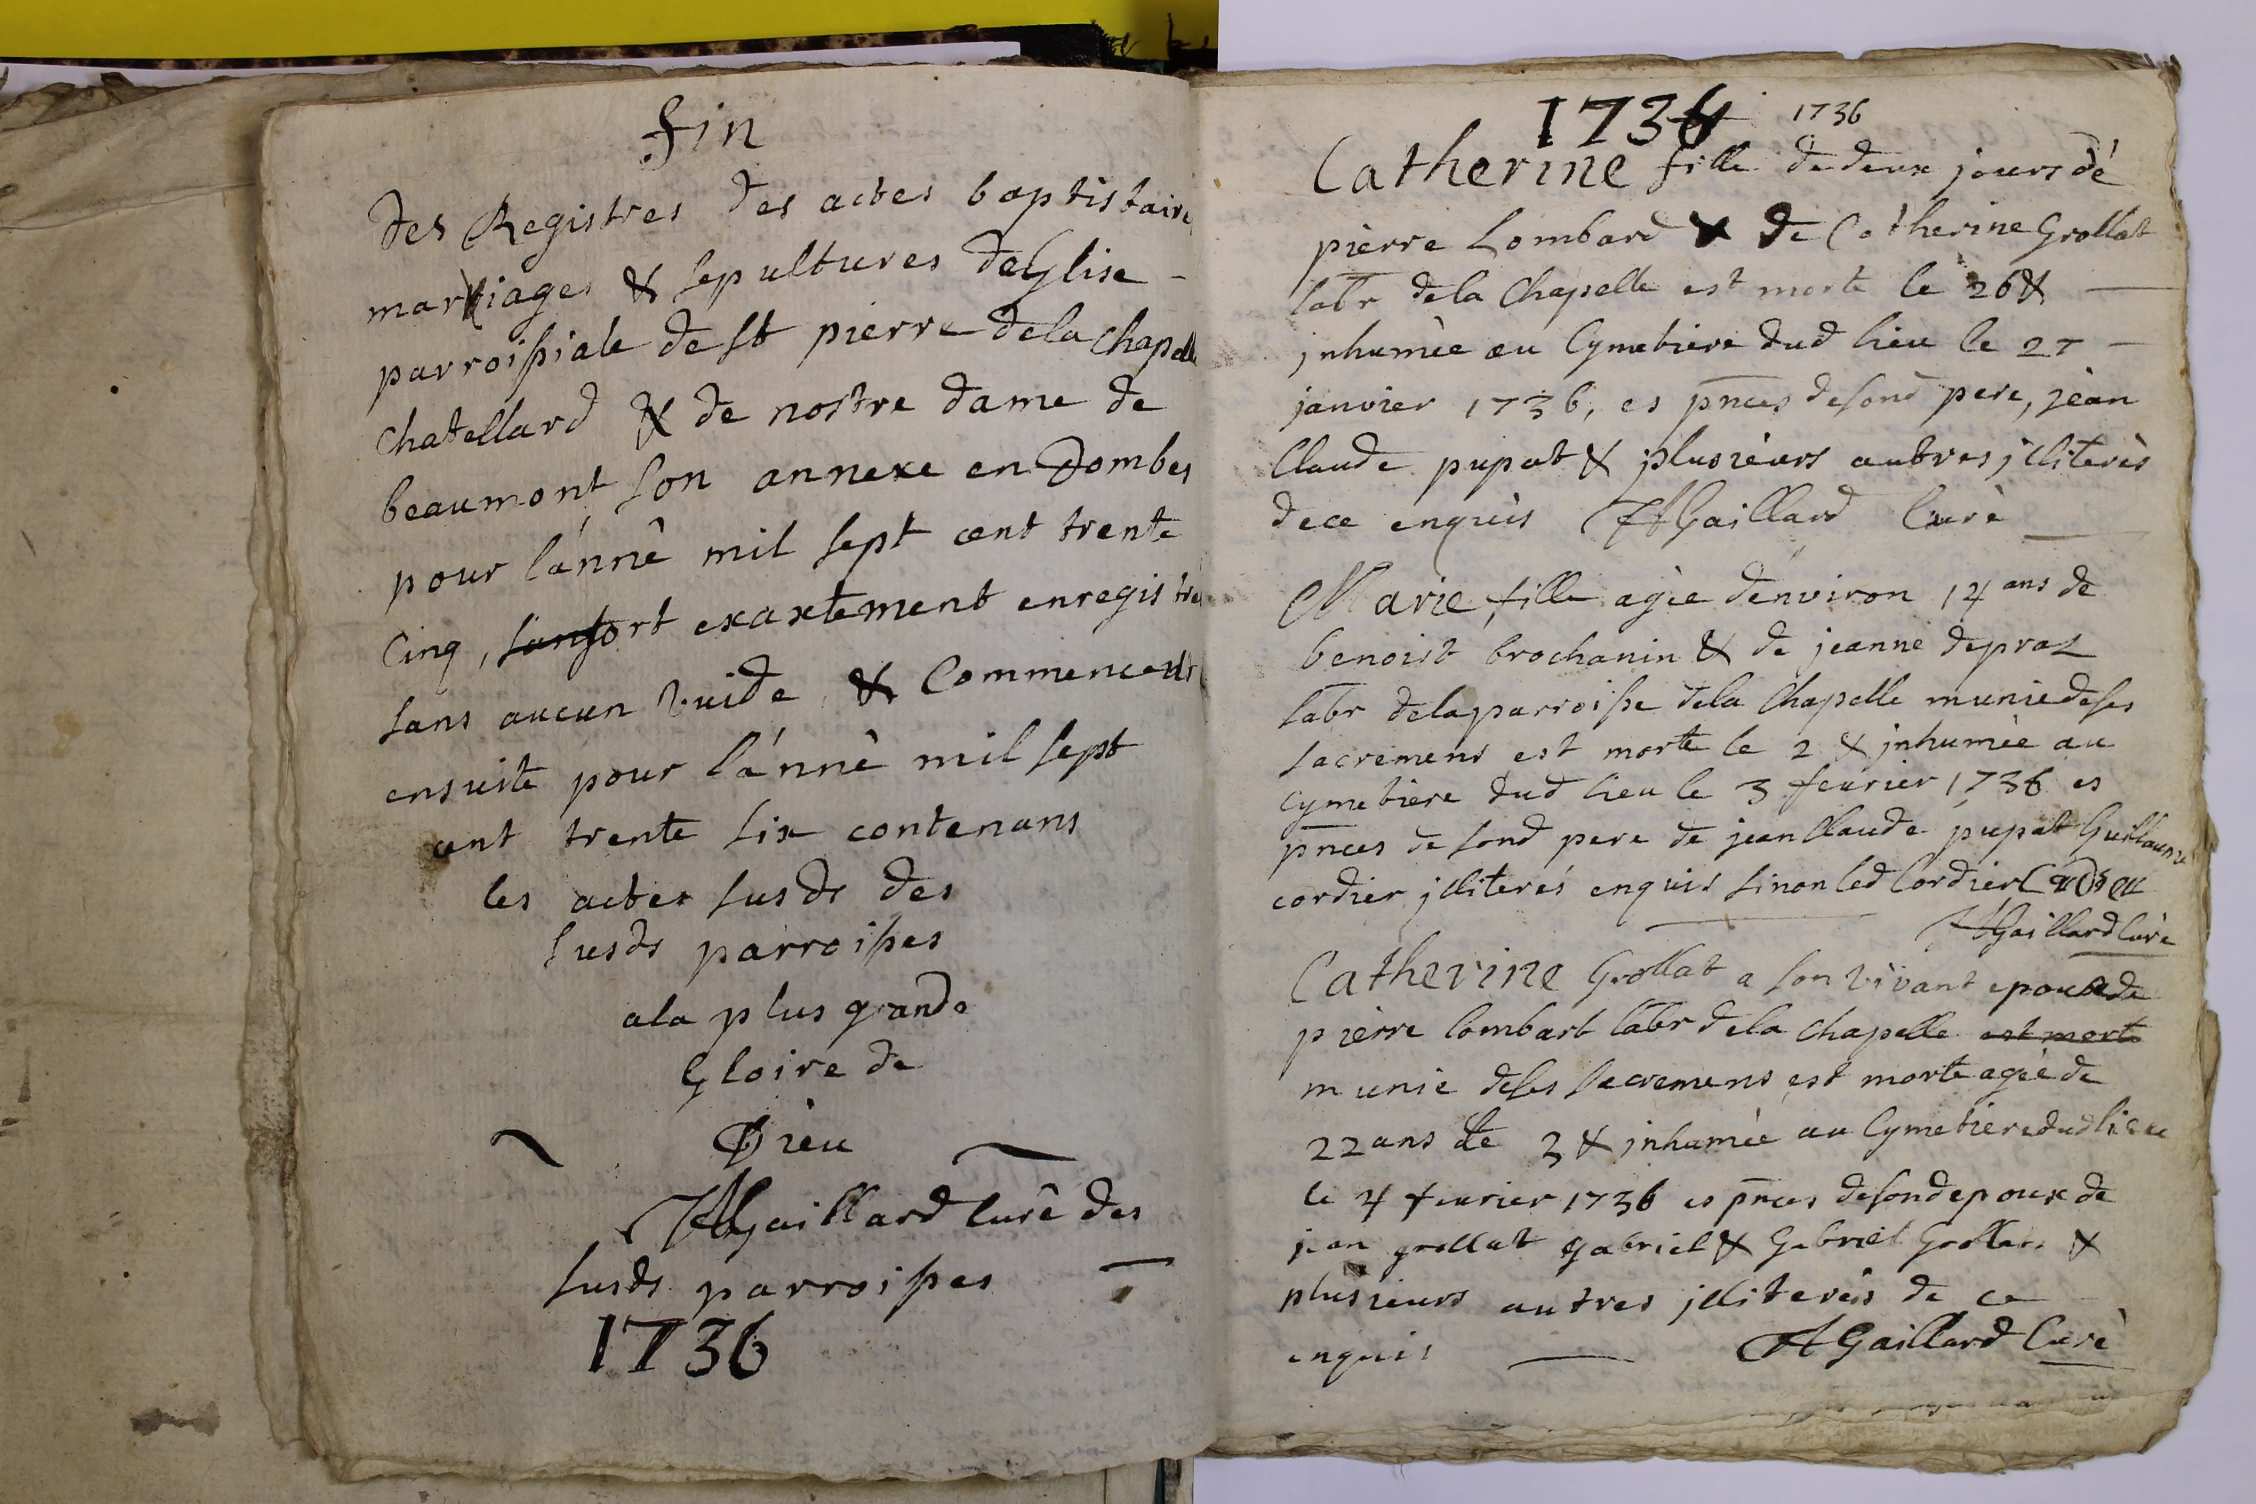 fin
des Registres des actes baptistaire
marriages & sepultures deglise
parroissiale de st pierre dela chapelle
chatellard & de nostre dame de
beaumont son annexe en Dombes
pour lánnè mil sept cent trente
Cinq, sansort exaxtement enregistrès
sans aucun vuide & Commencent
ensuite pour lánnè mil sept
cent trente six contenans
les actes susds des
susds parroisses
ala plus grande
Gloire de
Dièu
AGaillard Curè des
susds parroisses
1736
1736 1736
Catherine fille de deux jours dè
pièrre Lombard & de Catherine Grollat
labr dela Chapelle est morte le 26 &
jnhumèe au Cymetiere dud lieu le 27
janvier 1736, es pnces desond pere, jean
Claude pupat & plusieurs autres jlliterès
dece enquis AGaillard Curè
Marie, fille agèe d'environ 14 ans de
benoist brochanin & de jeanne depras
labr delaparroisse dela Chapelle munie deses
sacremens est morte le 2 & jnhumèe au
cymetiere dud lieu le 3 feurier 1736 es
pnces de sond pere de jean Claude pupat Guillaume
cordier jlliterés enquis sinon led Cordier
AGaillard Curè
Catherine Grollat a son vivant epouse de
pièrre lombart labr dela chapelle est morte
munie deses sacremens est morte agèe de
22 ans le 3 & jnhumèe au Cymetiere dud lieu
le 4 feurier 1736 es pnces desond epoux de
jean grollat gabriel & Gabriel Grollat &
plusieurs autres jlliterès de ce
enquis AGaillard Curè